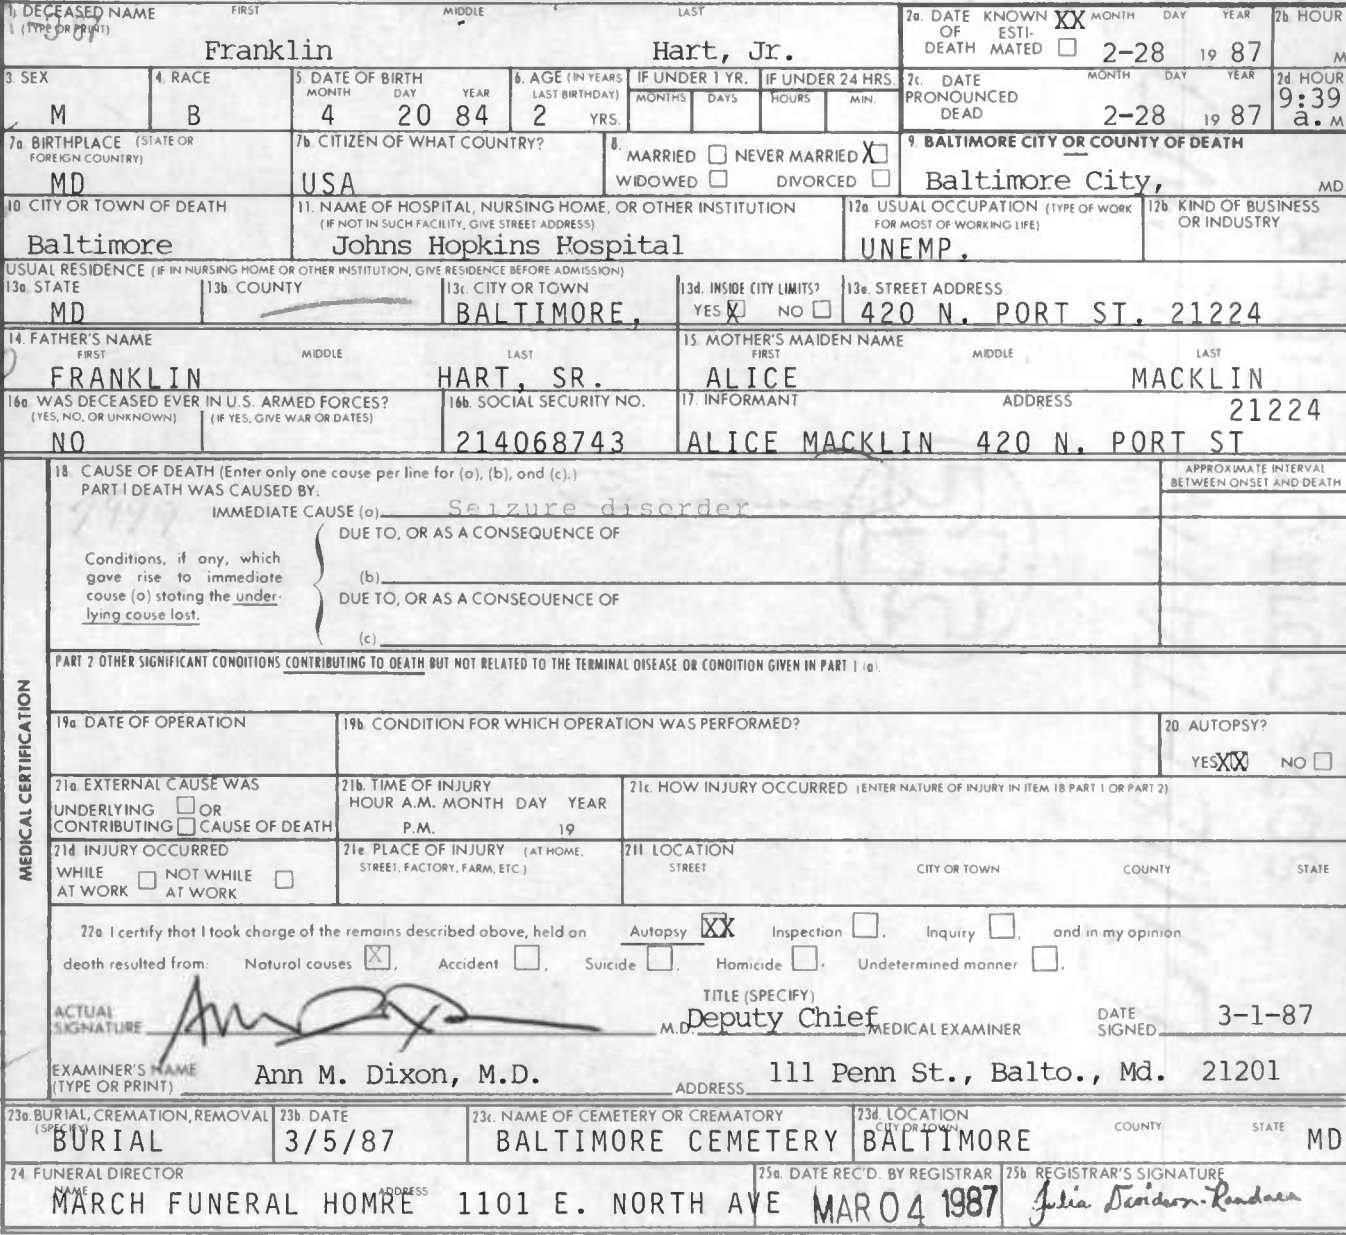 1. DECEASED NAME FIRST MIDDLE LAST
(TYPE OR PRINT)
Franklin Hart, Jr.
2a. DATE OF DEATH KNOWN XX ESTIMATED MONTH DAY YEAR
2-28 19 87
2b HOUR
M
3. SEX
M
4. RACE
B
5. DATE OF BIRTH
MONTH DAY YEAR
4 20 84
6. AGE (IN YEARS LAST BIRTHDAY)
2 YRS.
IF UNDER 1 YR.
MONTHS DAYS
IF UNDER 24 HRS.
HOURS MIN.
2c. DATE PRONOUNCED DEAD MONTH DAY YEAR
2-28 19 87
2d HOUR
9:39
a. M
7a. BIRTHPLACE (STATE OR
FOREIGN COUNTRY)
MD
7b. CITIZEN OF WHAT COUNTRY?
USA
8.
MARRIED NEVER MARRIED X
WIDOWED DIVORCED
9. BALTIMORE CITY OR COUNTY OF DEATH
Baltimore City, MD
10. CITY OR TOWN OF DEATH
Baltimore
11. NAME OF HOSPITAL, NURSING HOME, OR OTHER INSTITUTION
(IF NOT IN SUCH FACILITY, GIVE STREET ADDRESS)
Johns Hopkins Hospital
12a. USUAL OCCUPATION (TYPE OF WORK
FOR MOST OF WORKING LIFE)
UNEMP.
12b. KIND OF BUSINESS
OR INDUSTRY
USUAL RESIDENCE (IF IN NURSING HOME OR OTHER INSTITUTION, GIVE RESIDENCE BEFORE ADMISSION)
13a. STATE
MD
13b. COUNTY
13c. CITY OR TOWN
BALTIMORE,
13d. INSIDE CITY LIMITS?
YES X NO
13e. STREET ADDRESS
420 N. PORT ST. 21224
14. FATHER'S NAME
FIRST MIDDLE LAST
FRANKLIN HART, SR.
15. MOTHER'S MAIDEN NAME
FIRST MIDDLE LAST
ALICE MACKLIN
16a. WAS DECEASED EVER IN U.S. ARMED FORCES?
(YES, NO, OR UNKNOWN) (IF YES, GIVE WAR OR DATES)
NO
16b. SOCIAL SECURITY NO.
214068743
17. INFORMANT ADDRESS
21224
ALICE MACKLIN 420 N. PORT ST
MEDICAL CERTIFICATION
18. CAUSE OF DEATH (Enter only one cause per line for (a), (b), and (c).)
PART I DEATH WAS CAUSED BY:
IMMEDIATE CAUSE (a) Seizure disorder
APPROXIMATE INTERVAL
BETWEEN ONSET AND DEATH
DUE TO, OR AS A CONSEQUENCE OF
Conditions, if any, which
gave rise to immediate
cause (a) stating the under-
lying cause last.
(b)
DUE TO, OR AS A CONSEQUENCE OF
(c)
PART 2 OTHER SIGNIFICANT CONDITIONS CONTRIBUTING TO DEATH BUT NOT RELATED TO THE TERMINAL DISEASE OR CONDITION GIVEN IN PART 1 (a).
19a. DATE OF OPERATION
19b. CONDITION FOR WHICH OPERATION WAS PERFORMED?
20 AUTOPSY?
YES XX NO
21a. EXTERNAL CAUSE WAS
UNDERLYING OR
CONTRIBUTING CAUSE OF DEATH
21b. TIME OF INJURY
HOUR A.M. MONTH DAY YEAR
P.M. 19
21c. HOW INJURY OCCURRED (ENTER NATURE OF INJURY IN ITEM 18 PART 1 OR PART 2)
21d. INJURY OCCURRED
WHILE AT WORK NOT WHILE AT WORK
21e. PLACE OF INJURY (AT HOME,
STREET, FACTORY, FARM, ETC.)
21f. LOCATION
STREET CITY OR TOWN COUNTY STATE
22a. I certify that I took charge of the remains described above, held an Autopsy XX Inspection , Inquiry , and in my opinion
death resulted from: Natural causes X , Accident , Suicide , Homicide , Undetermined manner .
ACTUAL
SIGNATURE Ann Dixon M.D.
TITLE (SPECIFY)
Deputy Chief MEDICAL EXAMINER
DATE
SIGNED 3-1-87
EXAMINER'S NAME
(TYPE OR PRINT) Ann M. Dixon, M.D.
ADDRESS 111 Penn St., Balto., Md. 21201
23a. BURIAL, CREMATION, REMOVAL
(SPECIFY)
BURIAL
23b. DATE
3/5/87
23c. NAME OF CEMETERY OR CREMATORY
BALTIMORE CEMETERY
23d. LOCATION
CITY OR TOWN COUNTY STATE
BALTIMORE MD
24. FUNERAL DIRECTOR
NAME ADDRESS
MARCH FUNERAL HOMRE 1101 E. NORTH AVE
25a. DATE REC'D. BY REGISTRAR
MAR 04 1987
25b. REGISTRAR'S SIGNATURE
Julia Davidson-Randall